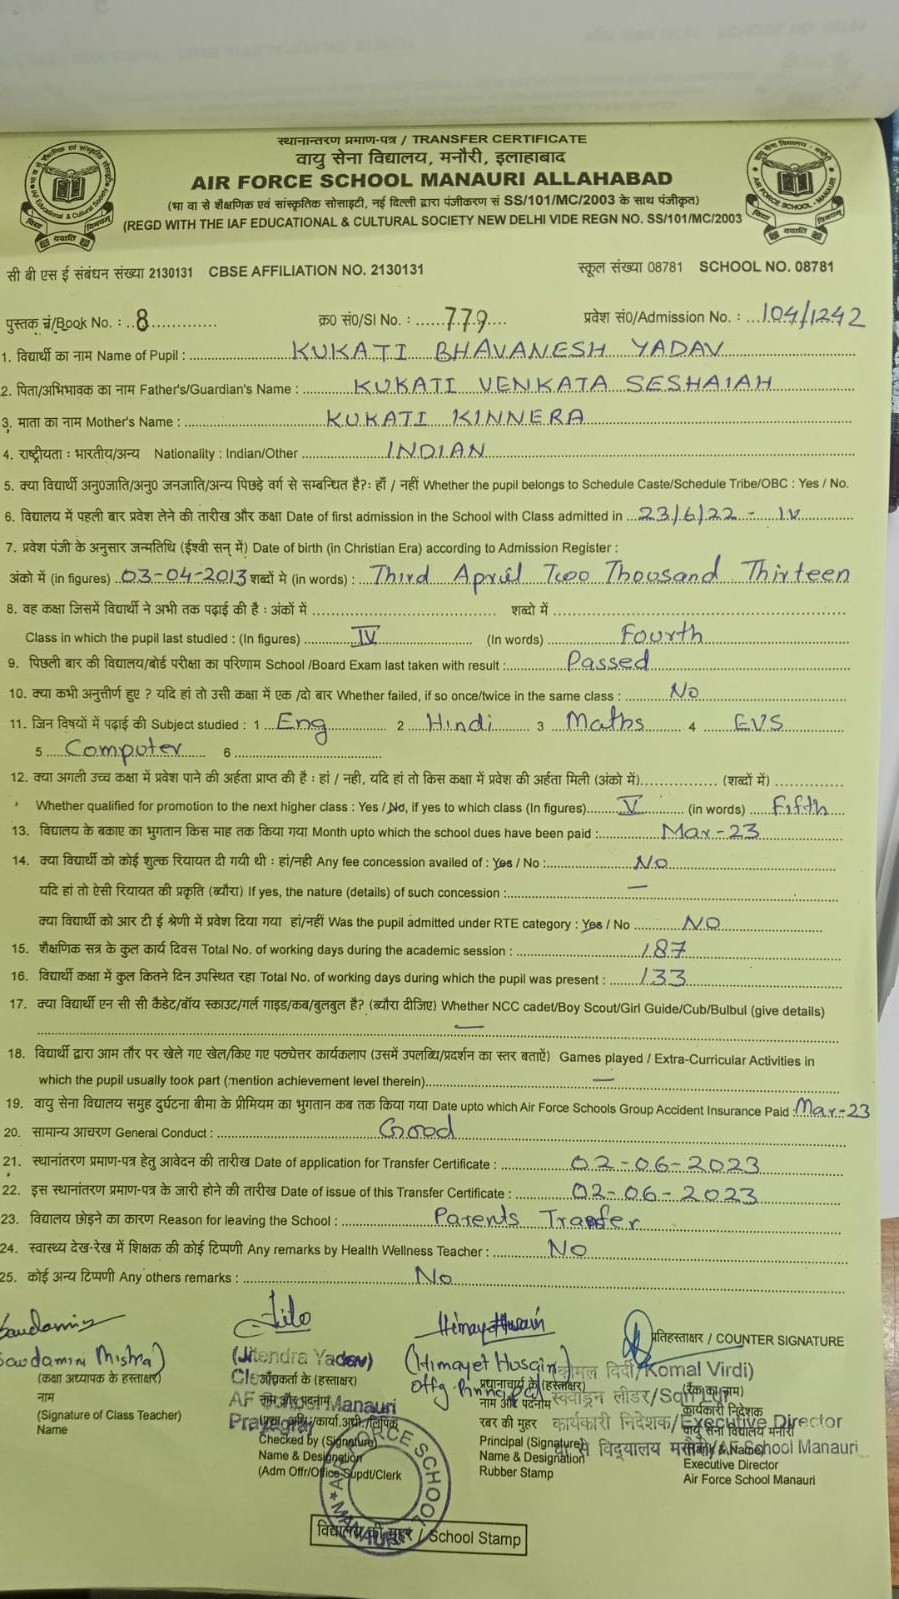 स्थानान्तरण प्रमाण-पत्र / TRANSFER CERTIFICATE
वायु सेना विद्यालय, मनौरी, इलाहाबाद
AIR FORCE SCHOOL MANAURI ALLAHABAD
(भा वा से शैक्षणिक एवं सांस्कृतिक सोसाइटी, नई दिल्ली द्वारा पंजीकरण सं SS/101/MC/2003 के साथ पंजीकृत)
(REGD WITH THE IAF EDUCATIONAL & CULTURAL SOCIETY NEW DELHI VIDE REGN NO. SS/101/MC/2003
सी बी एस ई संबंधन संख्या 2130131 CBSE AFFILIATION NO. 2130131 स्कूल संख्या 08781 SCHOOL NO. 08781
पुस्तक नं/Book No. : 8 क्र0 सं0/Sl No. : 779 प्रवेश सं0/Admission No. : 104/1242
1. विद्यार्थी का नाम Name of Pupil : KUKATI BHAVANESH YADAV
2. पिता/अभिभावक का नाम Father's/Guardian's Name : KUKATI VENKATA SESHAIAH
3. माता का नाम Mother's Name : KUKATI KINNERA
4. राष्ट्रीयता : भारतीय/अन्य Nationality : Indian/Other INDIAN
5. क्या विद्यार्थी अनु0जाति/अनु0 जनजाति/अन्य पिछड़े वर्ग से सम्बन्धित है?: हाँ / नहीं Whether the pupil belongs to Schedule Caste/Schedule Tribe/OBC : Yes / No.
6. विद्यालय में पहली बार प्रवेश लेने की तारीख और कक्षा Date of first admission in the School with Class admitted in 23/6/22 - IV
7. प्रवेश पंजी के अनुसार जन्मतिथि (ईश्वी सन् में) Date of birth (in Christian Era) according to Admission Register :
अंको में (in figures) 03-04-2013 शब्दों मे (in words) : Third April Two Thousand Thirteen
8. वह कक्षा जिसमें विद्यार्थी ने अभी तक पढ़ाई की है : अंकों में शब्दो में
Class in which the pupil last studied : (In figures) IV (In words) Fourth
9. पिछली बार की विद्यालय/बोर्ड परीक्षा का परिणाम School /Board Exam last taken with result : Passed
10. क्या कभी अनुत्तीर्ण हुए ? यदि हां तो उसी कक्षा में एक /दो बार Whether failed, if so once/twice in the same class : No
11. जिन विषयों में पढ़ाई की Subject studied : 1 Eng 2 Hindi 3 Maths 4 EVS
5 Computer 6
12. क्या अगली उच्च कक्षा में प्रवेश पाने की अर्हता प्राप्त की है : हां / नही, यदि हां तो किस कक्षा में प्रवेश की अर्हता मिली (अंको में) (शब्दों में)
Whether qualified for promotion to the next higher class : Yes / No, if yes to which class (In figures) V (in words) Fifth
13. विद्यालय के बकाए का भुगतान किस माह तक किया गया Month upto which the school dues have been paid : Mar-23
14. क्या विद्यार्थी को कोई शुल्क रियायत दी गयी थी : हां/नही Any fee concession availed of : Yes / No : No
यदि हां तो ऐसी रियायत की प्रकृति (ब्यौरा) If yes, the nature (details) of such concession : —
क्या विद्यार्थी को आर टी ई श्रेणी में प्रवेश दिया गया हां/नहीं Was the pupil admitted under RTE category : Yes / No NO
15. शैक्षणिक सत्र के कुल कार्य दिवस Total No. of working days during the academic session : 187
16. विद्यार्थी कक्षा में कुल कितने दिन उपस्थित रहा Total No. of working days during which the pupil was present : 133
17. क्या विद्यार्थी एन सी सी कैडेट/बॉय स्काउट/गर्ल गाइड/कब/बुलबुल है? (ब्यौरा दीजिए) Whether NCC cadet/Boy Scout/Girl Guide/Cub/Bulbul (give details)
—
18. विद्यार्थी द्वारा आम तौर पर खेले गए खेल/किए गए पठ्येत्तर कार्यकलाप (उसमें उपलब्धि/प्रदर्शन का स्तर बताऐं) Games played / Extra-Curricular Activities in
which the pupil usually took part (mention achievement level therein) —
19. वायु सेना विद्यालय समुह दुर्घटना बीमा के प्रीमियम का भुगतान कब तक किया गया Date upto which Air Force Schools Group Accident Insurance Paid : Mar-23
20. सामान्य आचरण General Conduct : Good
21. स्थानांतरण प्रमाण-पत्र हेतु आवेदन की तारीख Date of application for Transfer Certificate : 02-06-2023
22. इस स्थानांतरण प्रमाण-पत्र के जारी होने की तारीख Date of issue of this Transfer Certificate : 02-06-2023
23. विद्यालय छोड़ने का कारण Reason for leaving the School : Parents Tranfer
24. स्वास्थ्य देख-रेख में शिक्षक की कोई टिप्पणी Any remarks by Health Wellness Teacher : No
25. कोई अन्य टिप्पणी Any others remarks : No
प्रतिहस्ताक्षर / COUNTER SIGNATURE
Saudamini Mishra) (Jitendra Yadav) (Himayet Husain) कोमल विर्दी/Komal Virdi)
(कक्षा अध्यापक के हस्ताक्षर) जाँचकर्ता के (हस्ताक्षर) Offg. Principal प्रधानाचार्य के (हस्ताक्षर) स्क्वाड्रन लीडर/Sqn Ldr
नाम नाम और पदनाम कार्यकारी निदेशक
(Signature of Class Teacher) AF School Manauri रबर की मुहर कार्यकारी निदेशक/Executive Director
Name Prayagraj वायु सेना विद्यालय मनौरी
Checked by (Signature) Principal (Signature) वा से विद्यालय मनौरी/AF School Manauri
Name & Designation Name & Designation Executive Director
(Adm Offr/Office Supdt/Clerk Rubber Stamp Air Force School Manauri
AIR FORCE SCHOOL MANAURI
विद्यालय की मुहर / School Stamp